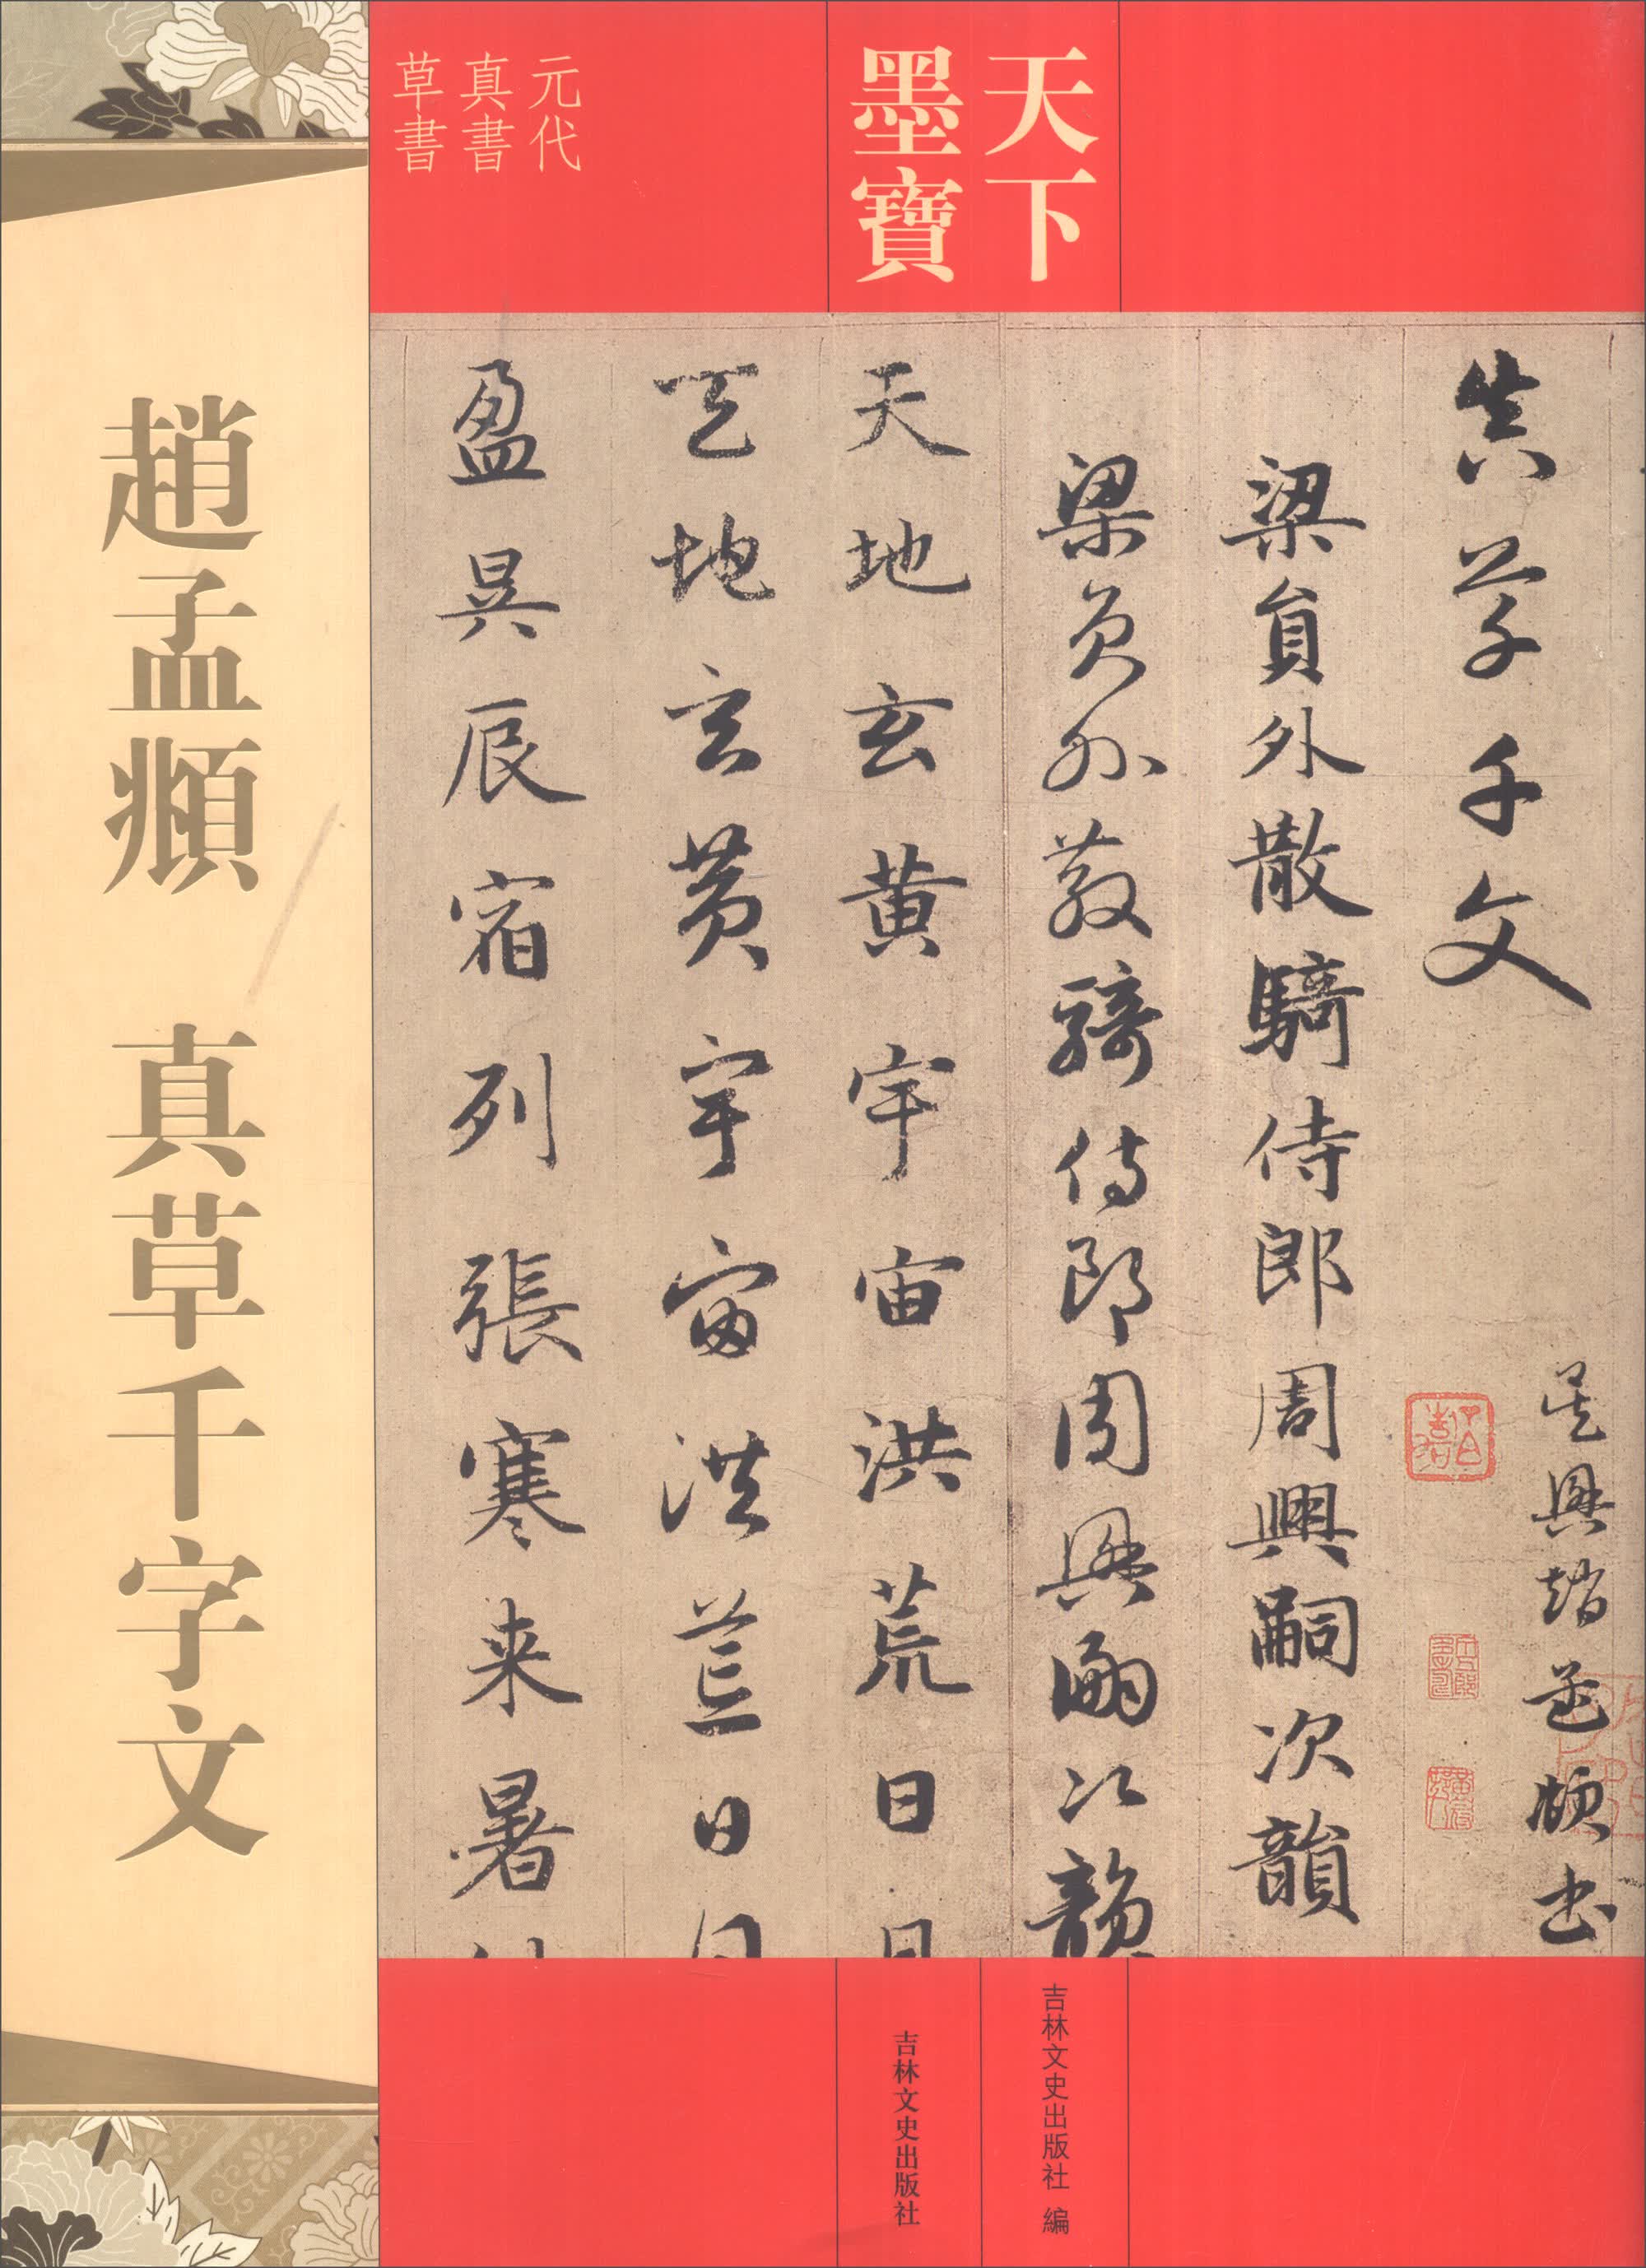 天下
墨寶
元代
真書
草書
趙孟頫 真草千字文
真草千文
吳興趙孟頫書
梁員外散騎侍郎周興嗣次韻
梁員外散騎侍郎周興嗣次韻
天地玄黄宇宙洪荒日月
天地玄黄宇宙洪荒日月
盈昃辰宿列張寒来暑
吉林文史出版社 編
吉林文史出版社